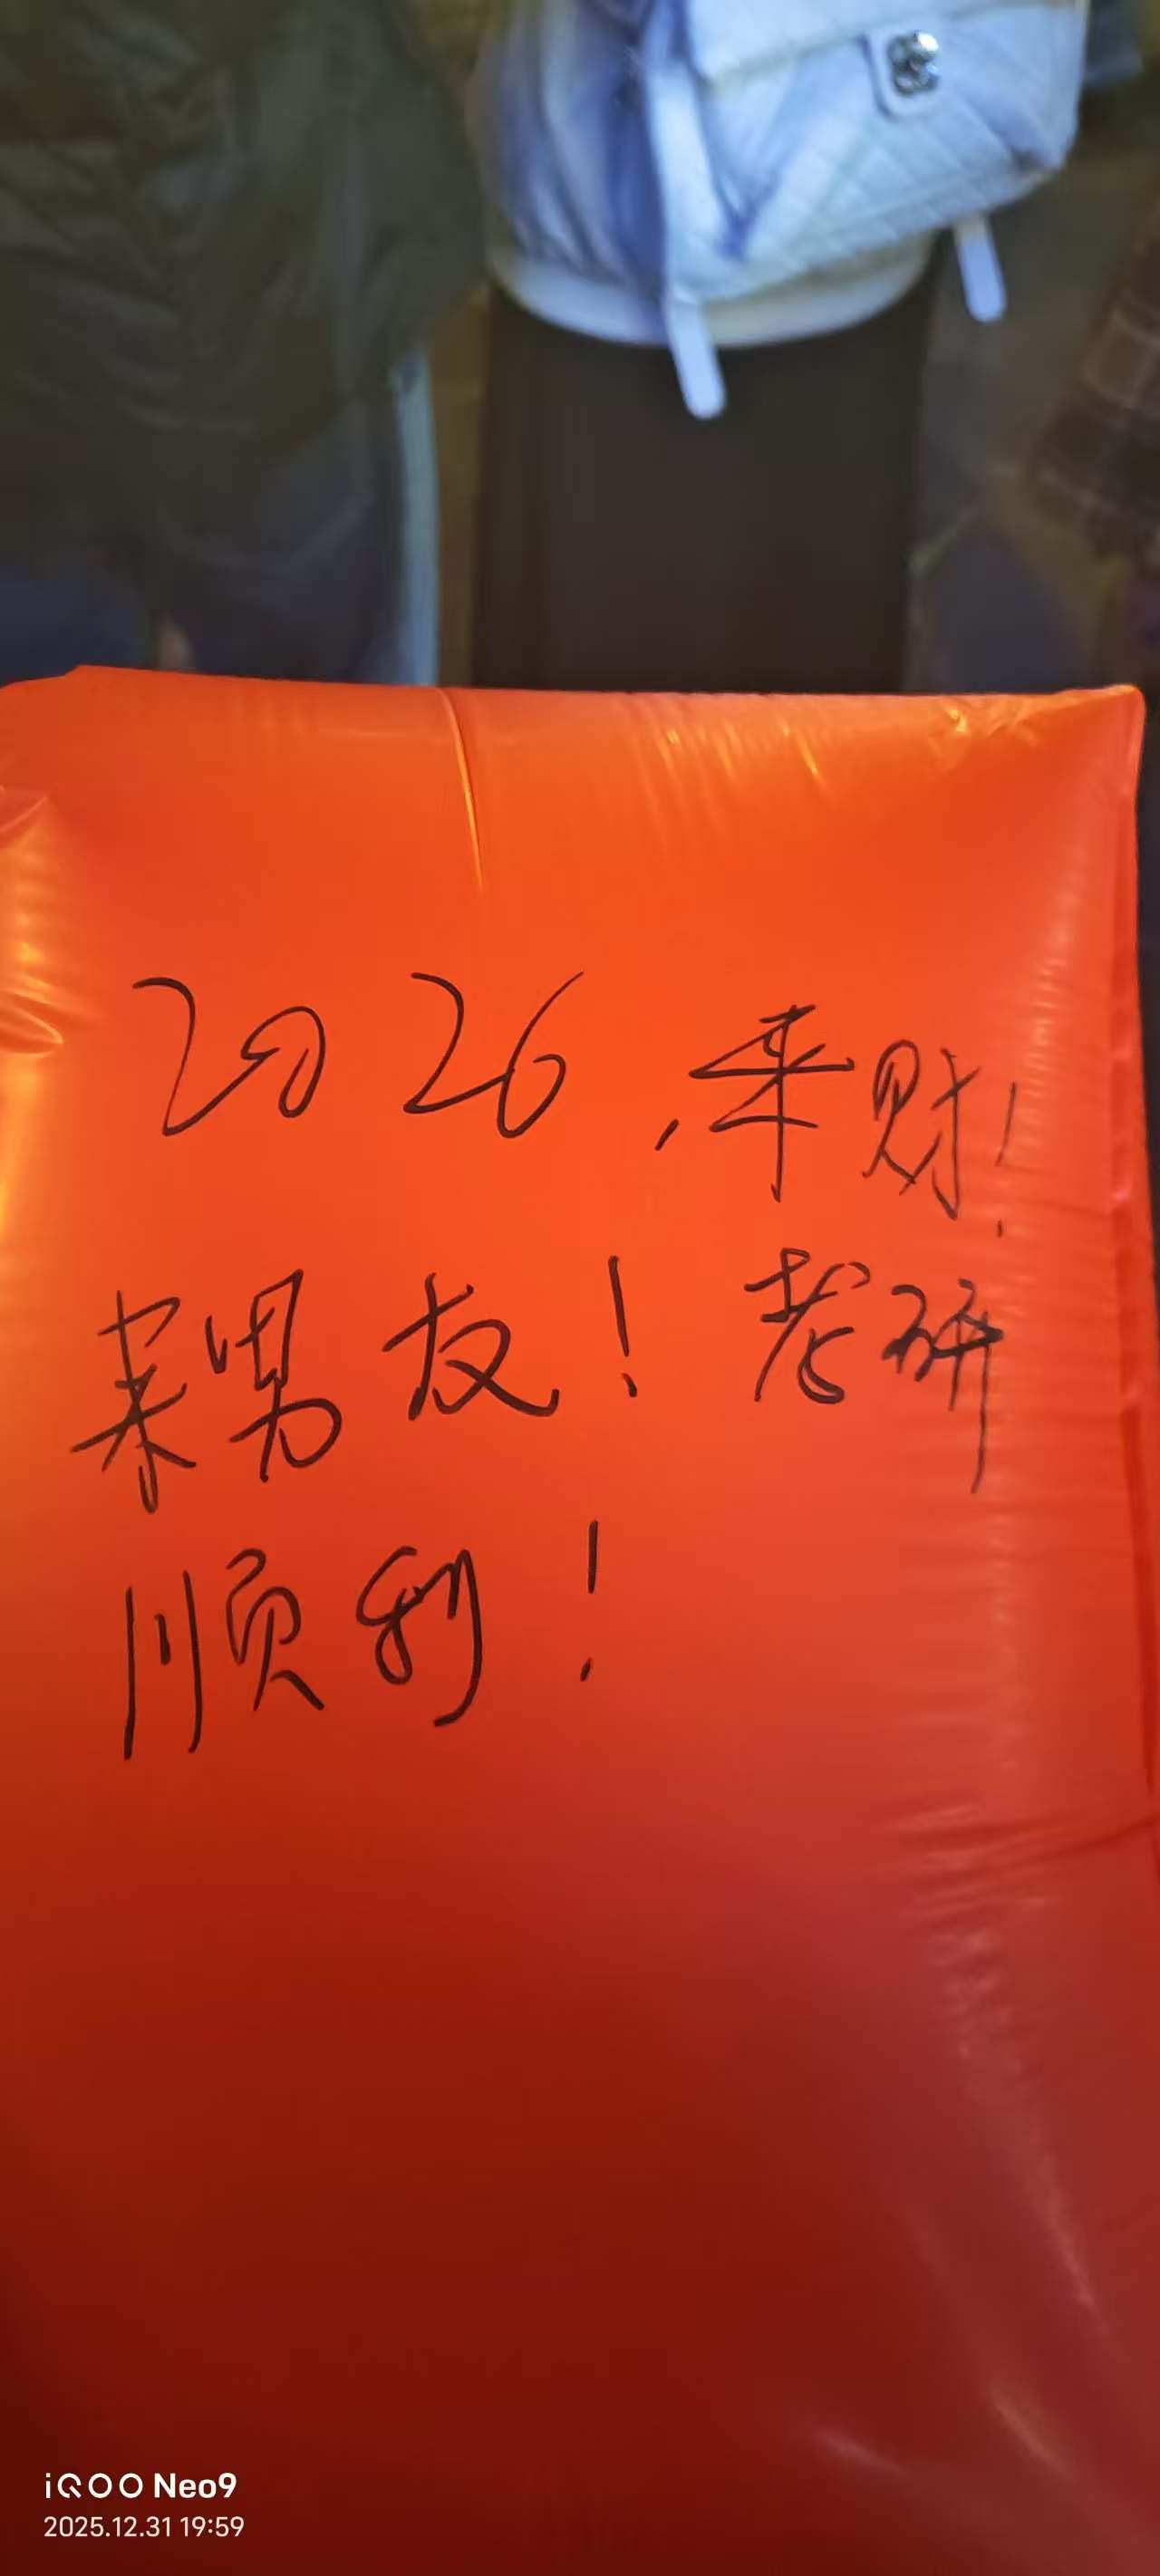 2026，来财！
来男友！考研
顺利！
iQOO Neo9
2025.12.31 19:59